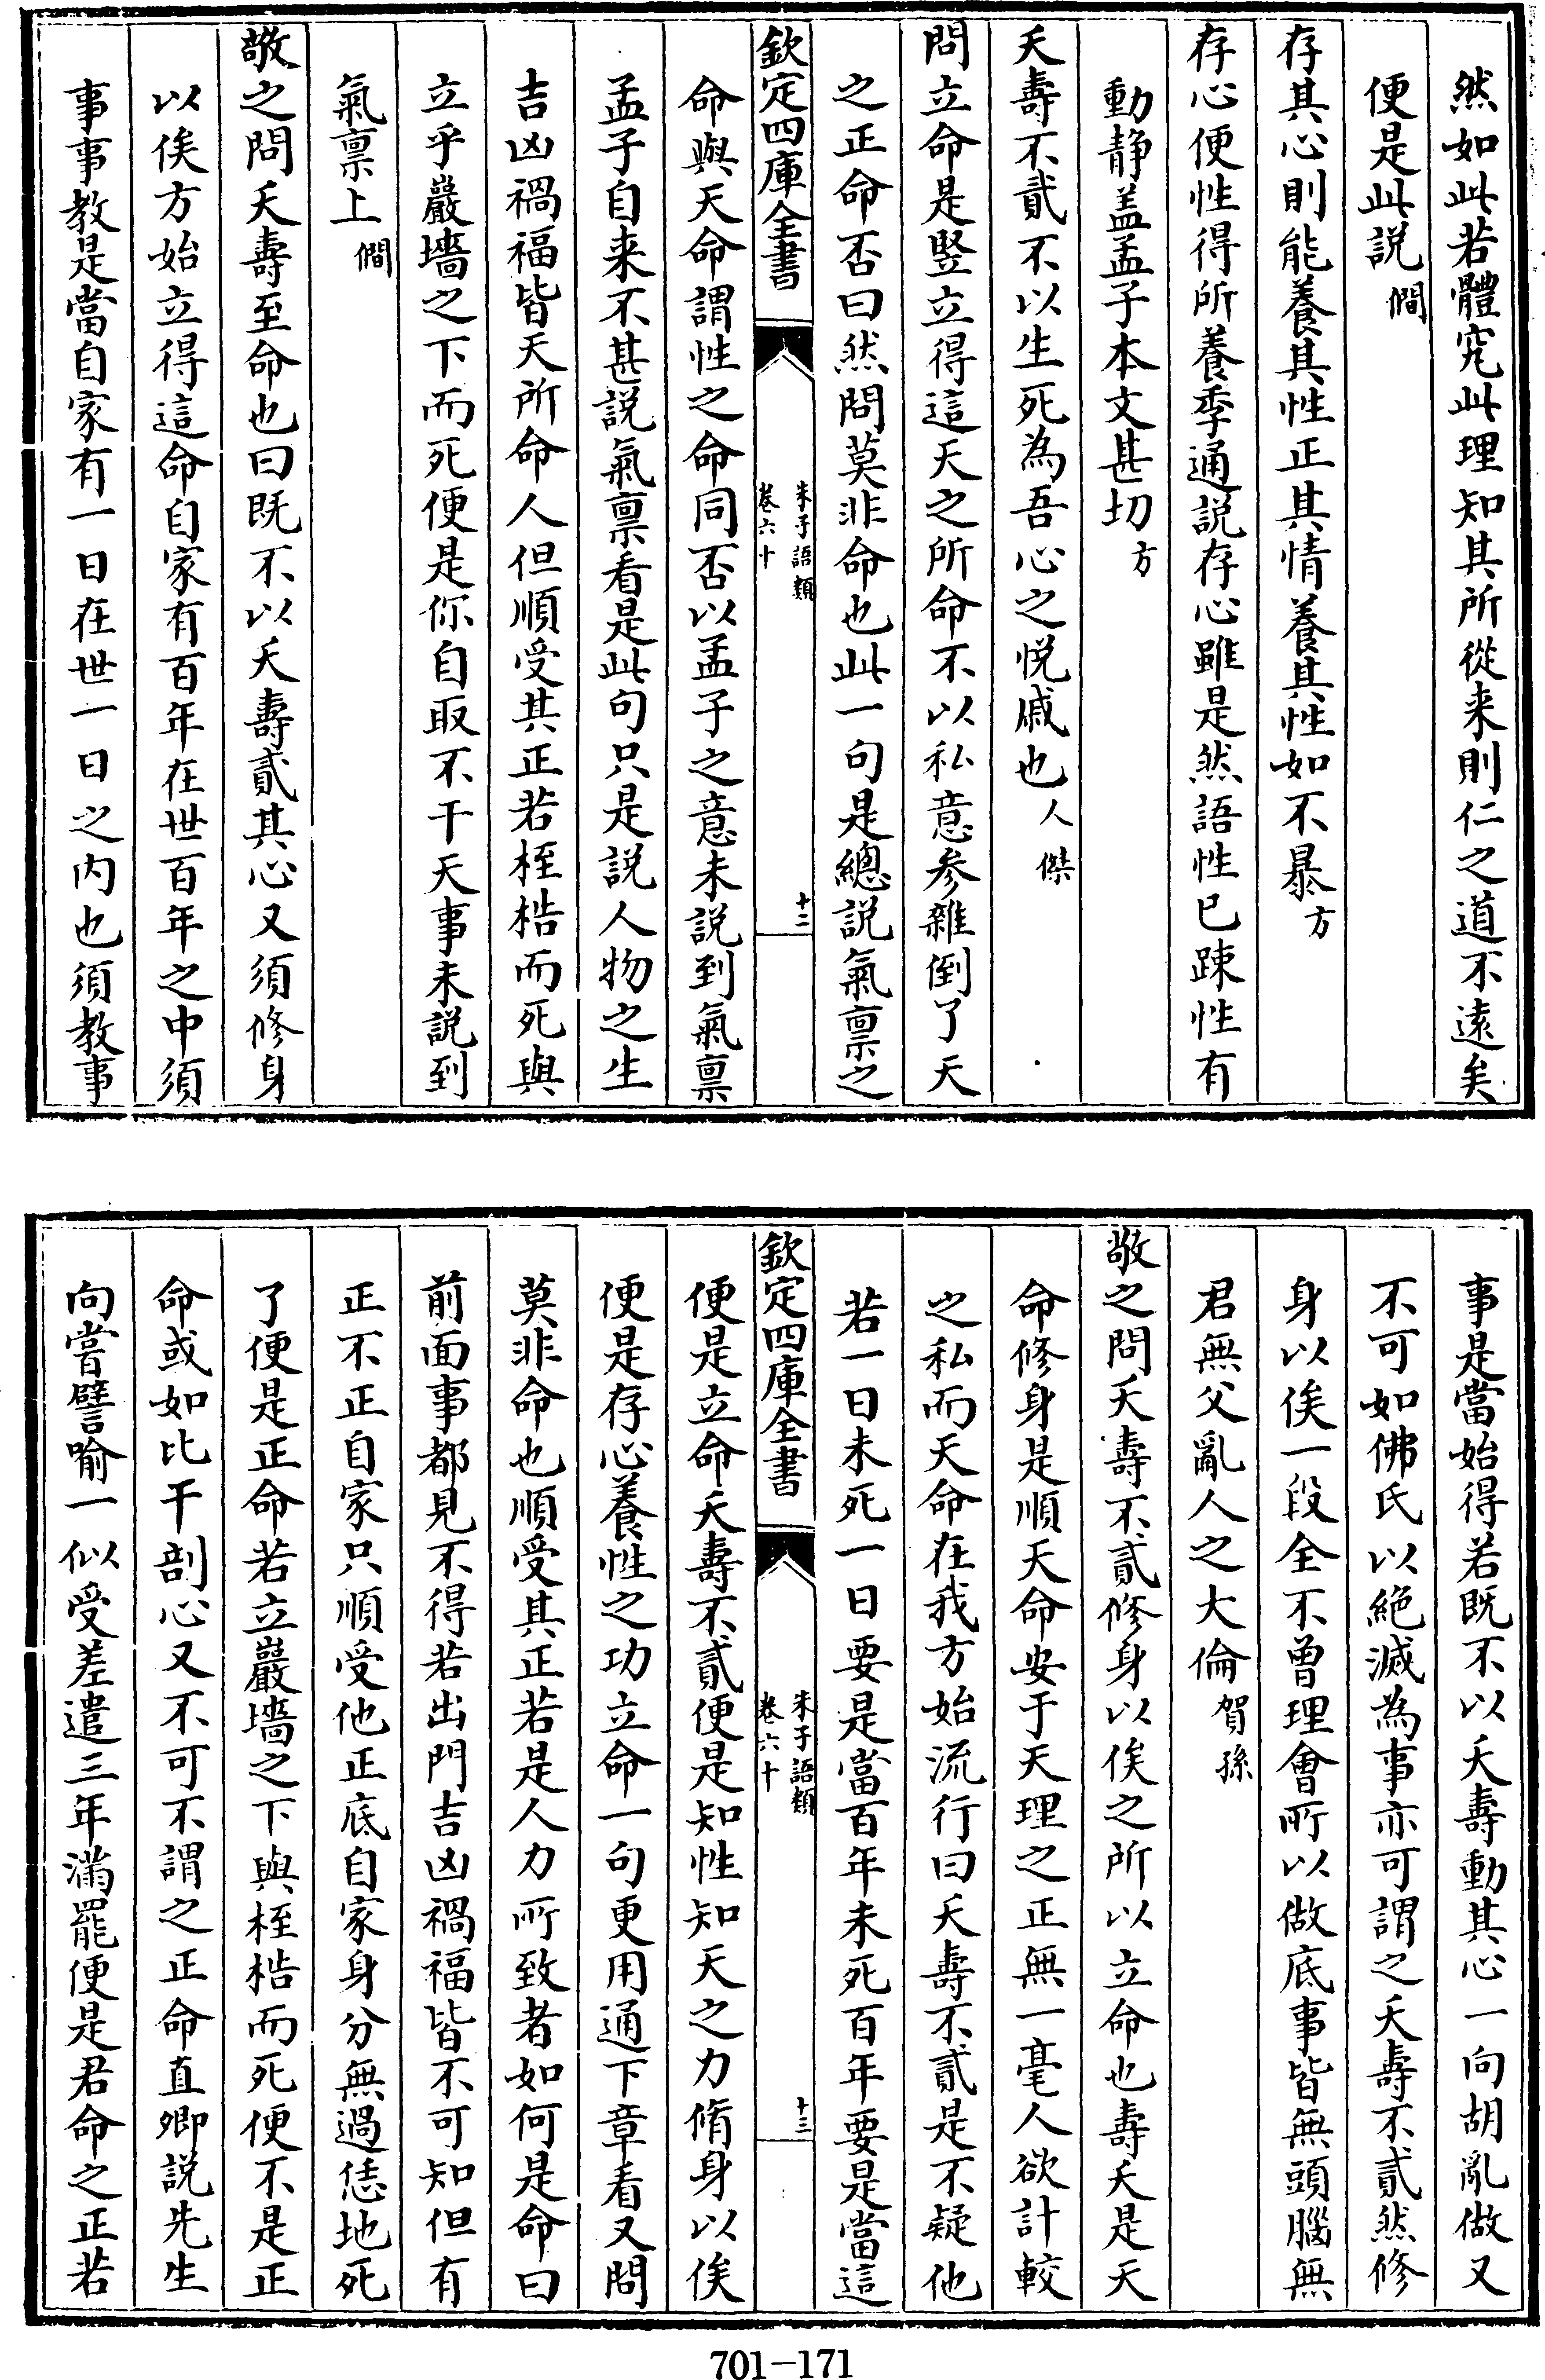 然如此若體究此理知其所從来則仁之道不遠矣
便是此説 僩
存其心則能養其性正其情養其性如不暴 方
存心便性得所養季通説存心雖是然語性已踈性有
動静盖孟子本文甚切 方
夭壽不貳不以生死為吾心之悦戚也 人傑
問立命是竪立得這天之所命不以私意参雜倒了天
之正命否曰然問莫非命也此一句是總説氣禀之
欽定四庫全書
朱子語類
卷六十
十二
命與天命謂性之命同否以孟子之意未説到氣禀
孟子自来不甚説氣禀看是此句只是説人物之生
吉凶禍福皆天所命人但順受其正若桎梏而死與
立乎巖墻之下而死便是你自取不干天事未説到
氣禀上 僩
敬之問夭壽至命也曰既不以夭壽貳其心又須修身
以俟方始立得這命自家有百年在世百年之中須
事事教是當自家有一日在世一日之内也須教事
事是當始得若既不以夭壽動其心一向胡亂做又
不可如佛氏以絶滅為事亦可謂之夭壽不貳然修
身以俟一段全不曾理會所以做底事皆無頭腦無
君無父亂人之大倫 賀孫
敬之問夭壽不貳修身以俟之所以立命也壽夭是天
命修身是順天命安于天理之正無一毫人欲計較
之私而天命在我方始流行曰夭壽不貳是不疑他
若一日未死一日要是當百年未死百年要是當這
欽定四庫全書
朱子語類
卷六十
十三
便是立命夭壽不貳便是知性知天之力脩身以俟
便是存心養性之功立命一句更用通下章看又問
莫非命也順受其正若是人力所致者如何是命曰
前面事都見不得若出門吉凶禍福皆不可知但有
正不正自家只順受他正底自家身分無過恁地死
了便是正命若立巖墻之下與桎梏而死便不是正
命或如比干剖心又不可不謂之正命直卿説先生
向嘗譬喻一似受差遣三年滿罷便是君命之正若
701-171